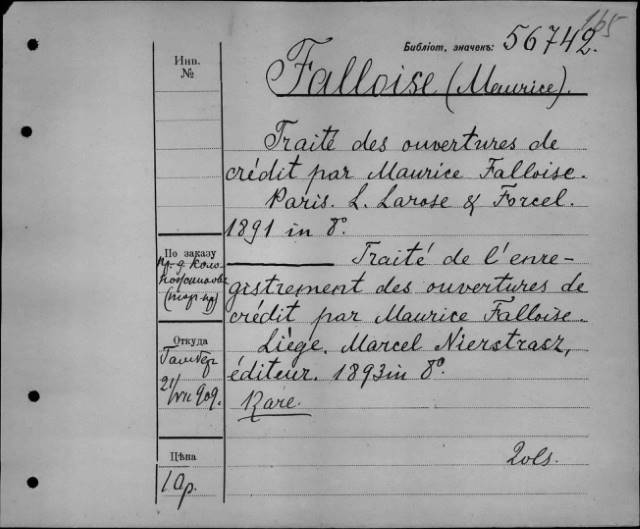 165
Библіот. значекъ: 56742.
Инв.
№
Falloise (Maurice).
Traité des ouvertures de
crédit par Maurice Falloise.
Paris. L. Larose & Forcel.
1891 in 8º.
Traité de l'enre-
gistrement des ouvertures de
crédit par Maurice Falloise.
Liége. Marcel Nierstrasz,
éditeur. 1893 in 8º.
Rare.
2 vols.
По заказу
Откуда
21/VII 909.
Цѣна
10 р.